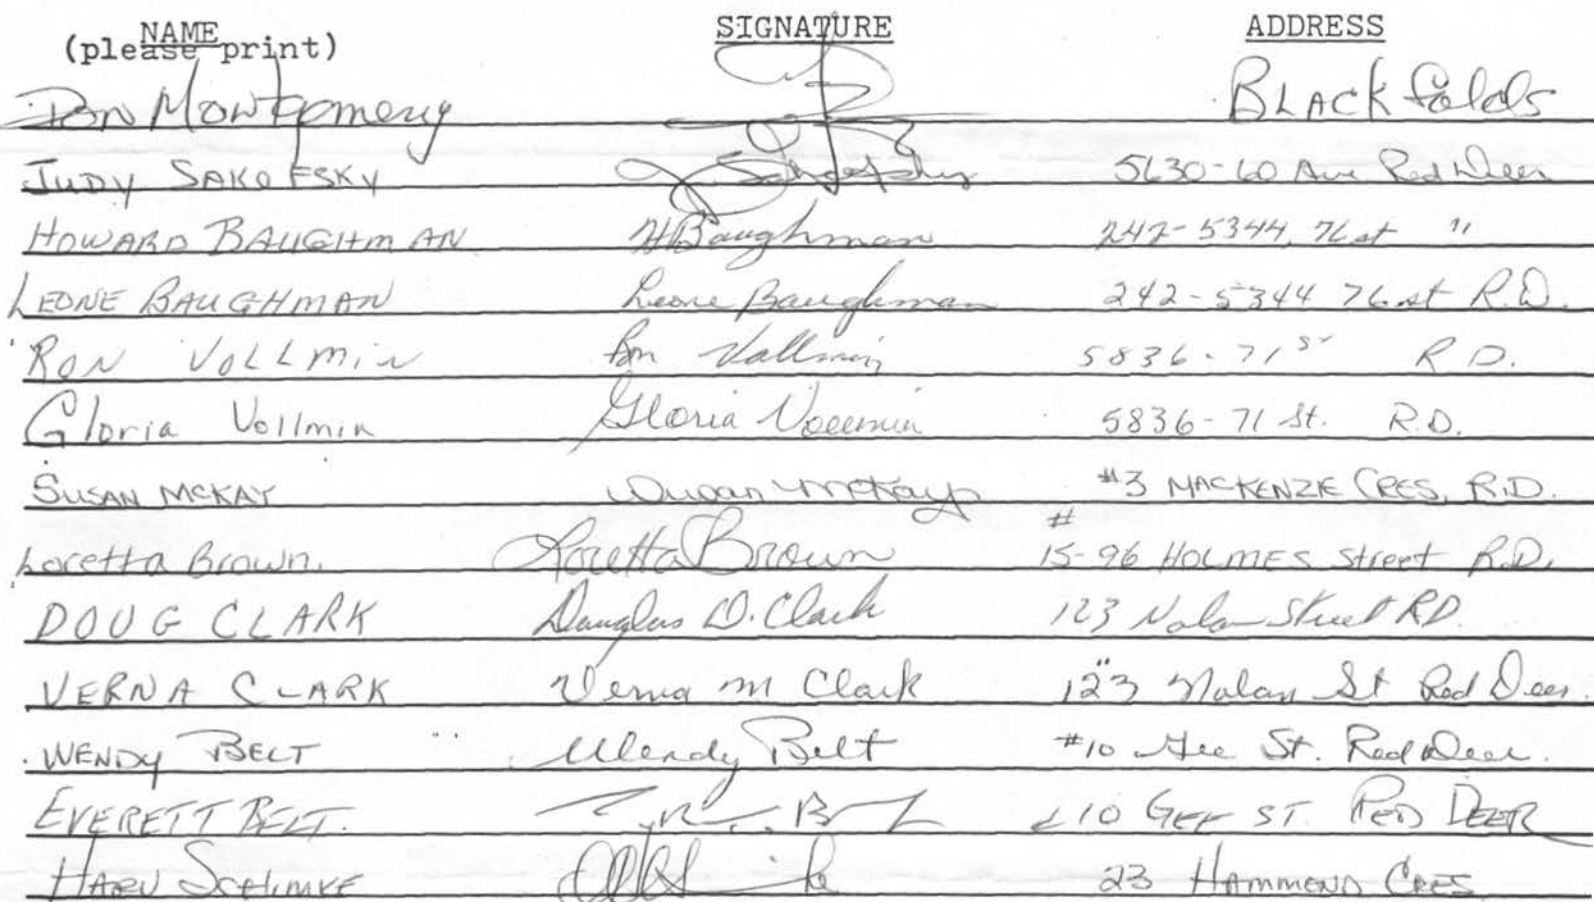 NAME SIGNATURE ADDRESS
(please print)
Don Montgomery BLACKfalds
JUDY SAKOFSKY J Sakofsky 5630-60 Ave Red Deer
HOWARD BAUGHMAN H Baughman 242-5344, 76 st "
LEONE BAUGHMAN Leone Baughman 242-5344 76 st R.D.
RON VOLLMIN Ron Vollmin 5836-71 St R D.
Gloria Vollmin Gloria Vollmin 5836-71 St. R.D.
SUSAN MCKAY Susan McKay #3 MACKENZIE CRES, R.D.
Loretta Brown. Loretta Brown # 15-96 HOLMES Street R.D.
DOUG CLARK Douglas D. Clark 123 Nolan Street RD.
VERNA CLARK Verna M Clark 123 Nolan St Red Deer.
WENDY BELT Wendy Belt #10 Gee St. Red Deer.
EVERETT BELT. 10 GEE ST. RED DEER
HARV SCHIMKE 23 HAMMOND CRES